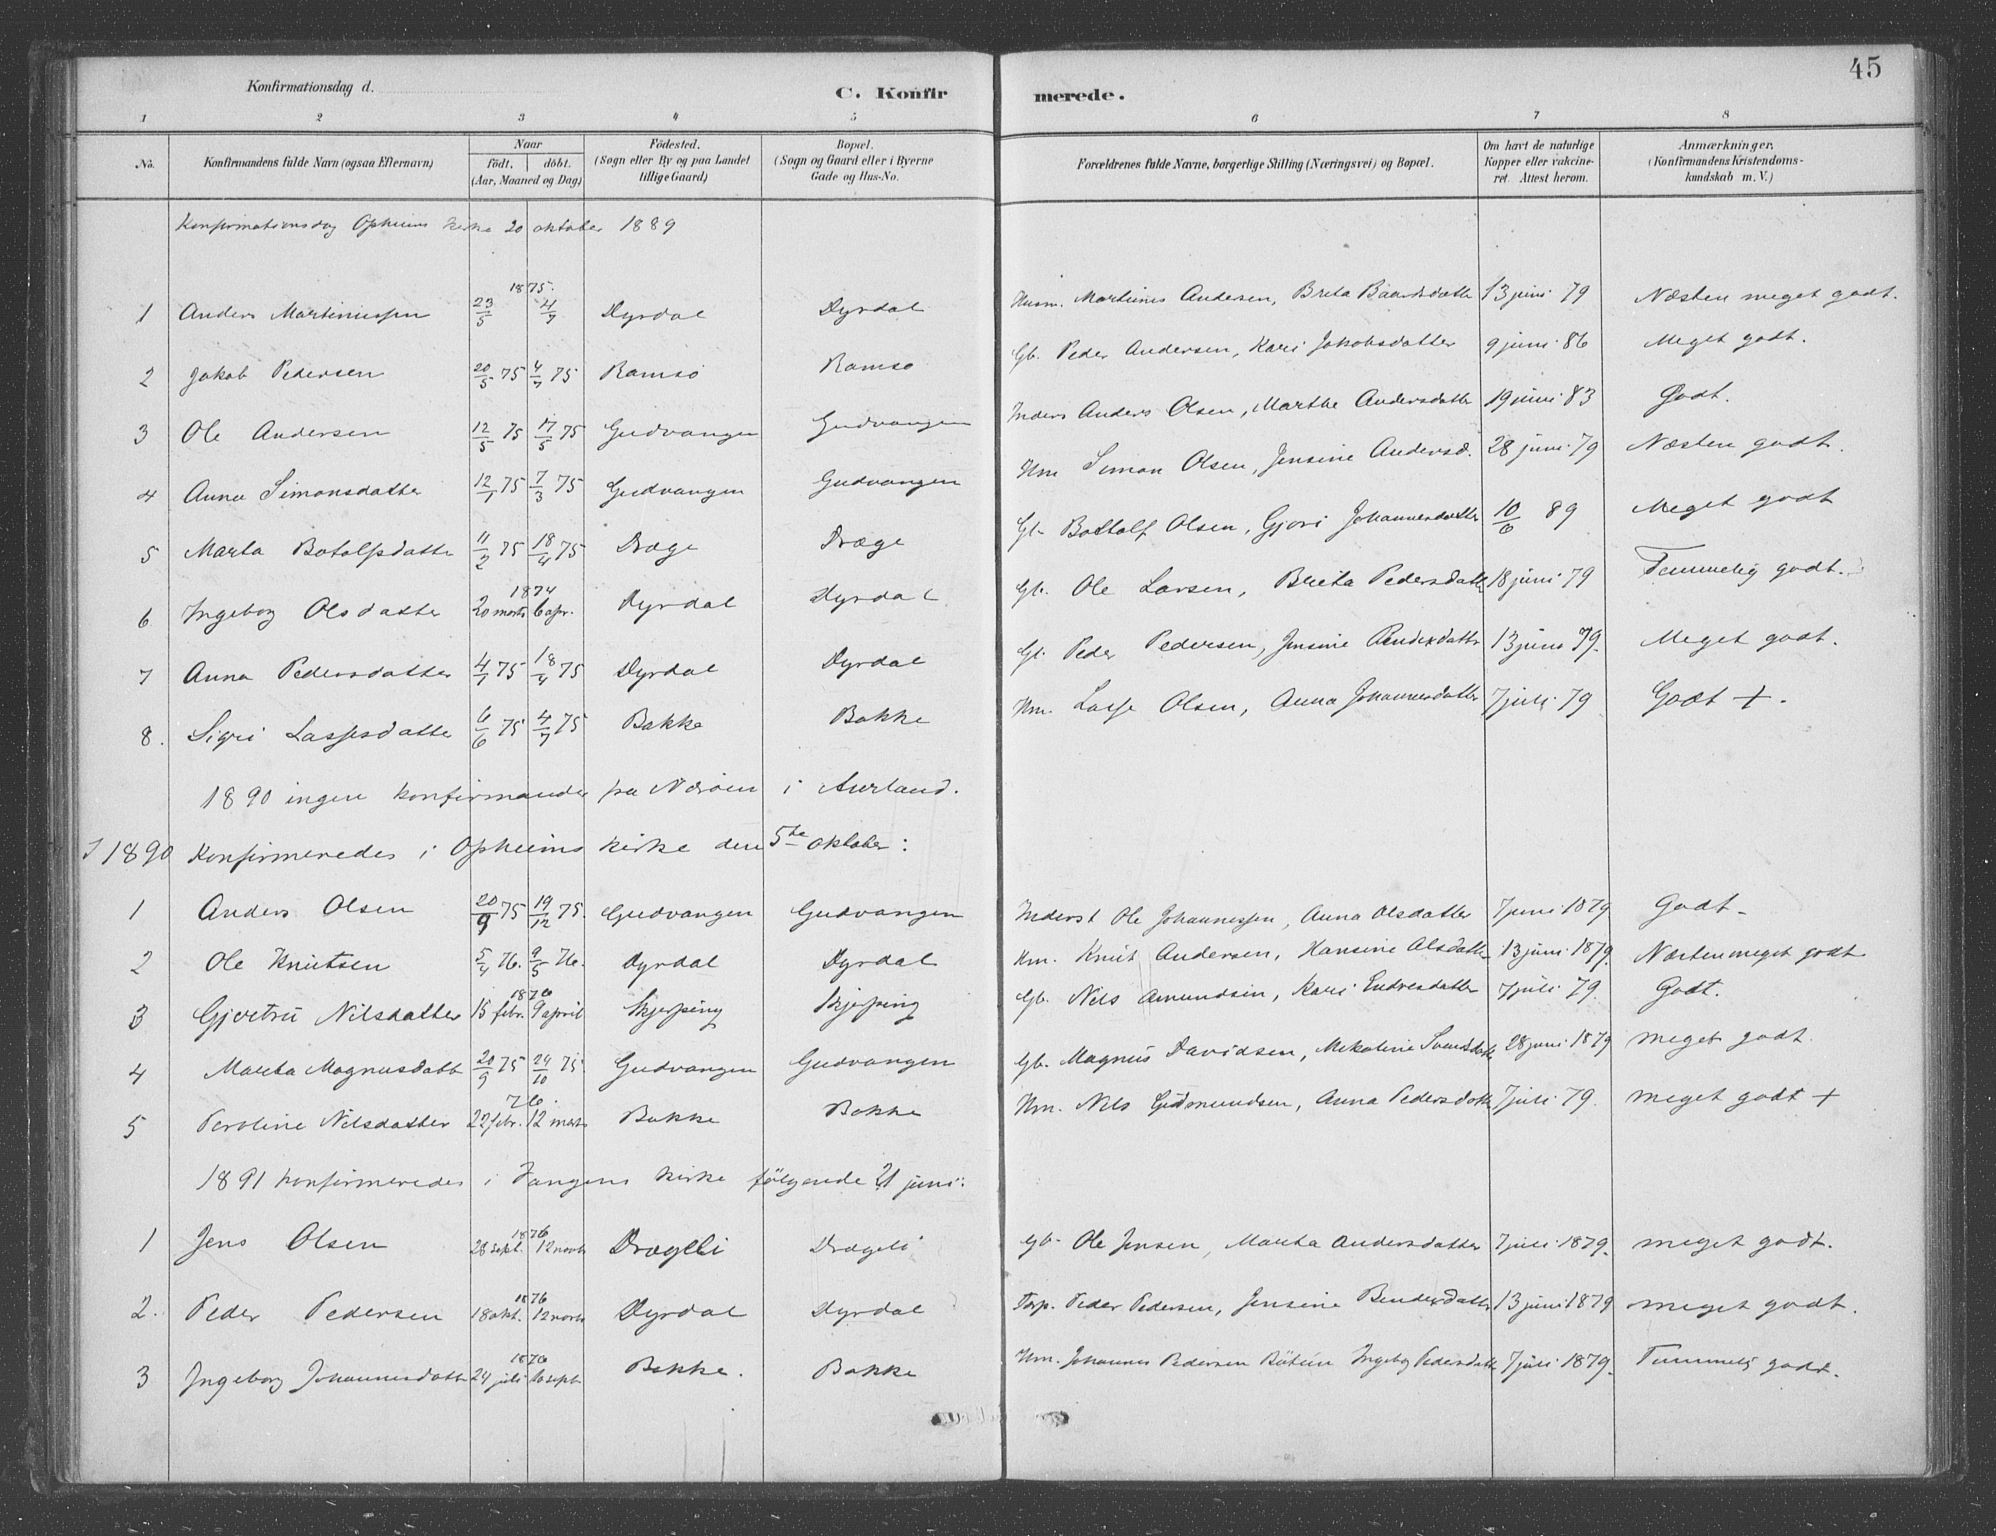 45
Konfirmationsdag d.
C. Konfirmerede.
1 2 3 4 5 6 7 8
No. Konfirmandens fulde Navn (ogsaa Efternavn) Naar födt. döbt. (Aar, Maaned og Dag) Födested. (Sogn eller By og paa Landet tillige Gaard) Bopæl. (Sogn og Gaard eller i Byerne Gade og Hus-No. Forældrenes fulde Navne, borgerlige Stilling (Næringsvei) og Bopæl. Om havt de naturlige Kopper eller vakcineret. Attest herom. Anmærkninger. (Konfirmandens Kristendomskundskab m. V.)
Konfirmationsdag Opheims kirke 20 oktober 1889
1 Anders Martinussen 1875 23/5 4/7 Dyrdal Dyrdal Husm. Martinus Andersen, Brita Baardsdatter 13 juni 79 Næsten meget godt.
2 Jakob Pedersen 20/5 75 4/7 75 Ramsö Ramsö Gb. Peder Andersen, Kari Jakobsdatter 9 juni 86 Meget godt.
3 Ole Andersen 12/5 75 17/5 75 Gudvangen Gudvangen Inders Anders Olsen, Marthe Andersdatter 19 juni 83 Godt.
4 Anna Simonsdatter 12/1 75 7/3 75 Gudvangen Gudvangen Hm Simon Olsen, Jensine Andersd. 28 juni 79 Næsten godt.
5 Marta Botolfsdatter 11/2 75 18/4 75 Dræge Dræge Gb. Bottolf Olsen, Gjöri Johannesdatter 10/6 89 Meget godt
6 Ingeborg Olsdatter 1874 20 marts 6 apr. Dyrdal Dyrdal Gb. Ole Larsen, Brita Pedersdatter 18 juni 79 Temmelig godt.
7 Anna Pedersdatter 4/1 75 18/4 75 Dyrdal Dyrdal Gb. Peder Pedersen, Jensine Bendixdattr 13 juni 79. Meget godt.
8. Sigri Lassesdatter 6/6 75 4/7 75 Bakke Bakke Hm. Lasse Olsen, Anna Johannesdatter 7 juli 79 Godt +.
1890 ingen konfirmander fra Næröen i Aurland.
I 1890 Konfirmeredes i Opheims kirke den 5te oktober:
1 Anders Olsen 20/9 75 19/12 75. Gudvangen Gudvangen Inderst Ole Johannessen, Anna Olsdatter 7 juni 1879 Godt
2 Ole Knutsen 5/4 76. 9/5 76. Dyrdal Dyrdal Hm. Knut Andersen, Hansine Olsdatter 13 juni 1879. Næsten meget godt
3 Gjertru Nilsdatter 1876 15 febr. 9 april Skjerping Skjerping Gb. Nils Amundsen, Kari Endresdatter 7 juli 79. Godt.
4 Marta Magnusdatt 20/9 75 24/10 75. Gudvangen Gudvangen Gb. Magnus Davidsen, 28 juni 1879 meget godt.
5 Peroline Nilsdatter 76. 22 febr. 12 marts Bakke Bakke Hm. Nils Gudmundsen, Anna Pedersdatter 7 juli 79. meget godt +
1891 konfirmeredes i Vangens kirke fölgende 21 juni:
1 Jens Olsen 1876 28 sept. 12 novbr Drægeli Drægeli Gb. Ole Jensen, Marta Andersdatter 7 juli 1879. meget godt.
2. Peder Pedersen 1876 18 okt. 12 novbr Dyrdal Dyrdal Peder Pedersen, Jensine Bendixdatter 13 juni 1879 meget godt.
3 Ingeborg Johannesdatter 1876 24 juli 10 sept Bakke. Bakke Hm. Johannes Pedersen Ingeborg Pedersdatter 7 juli 1879. Temmelig godt.